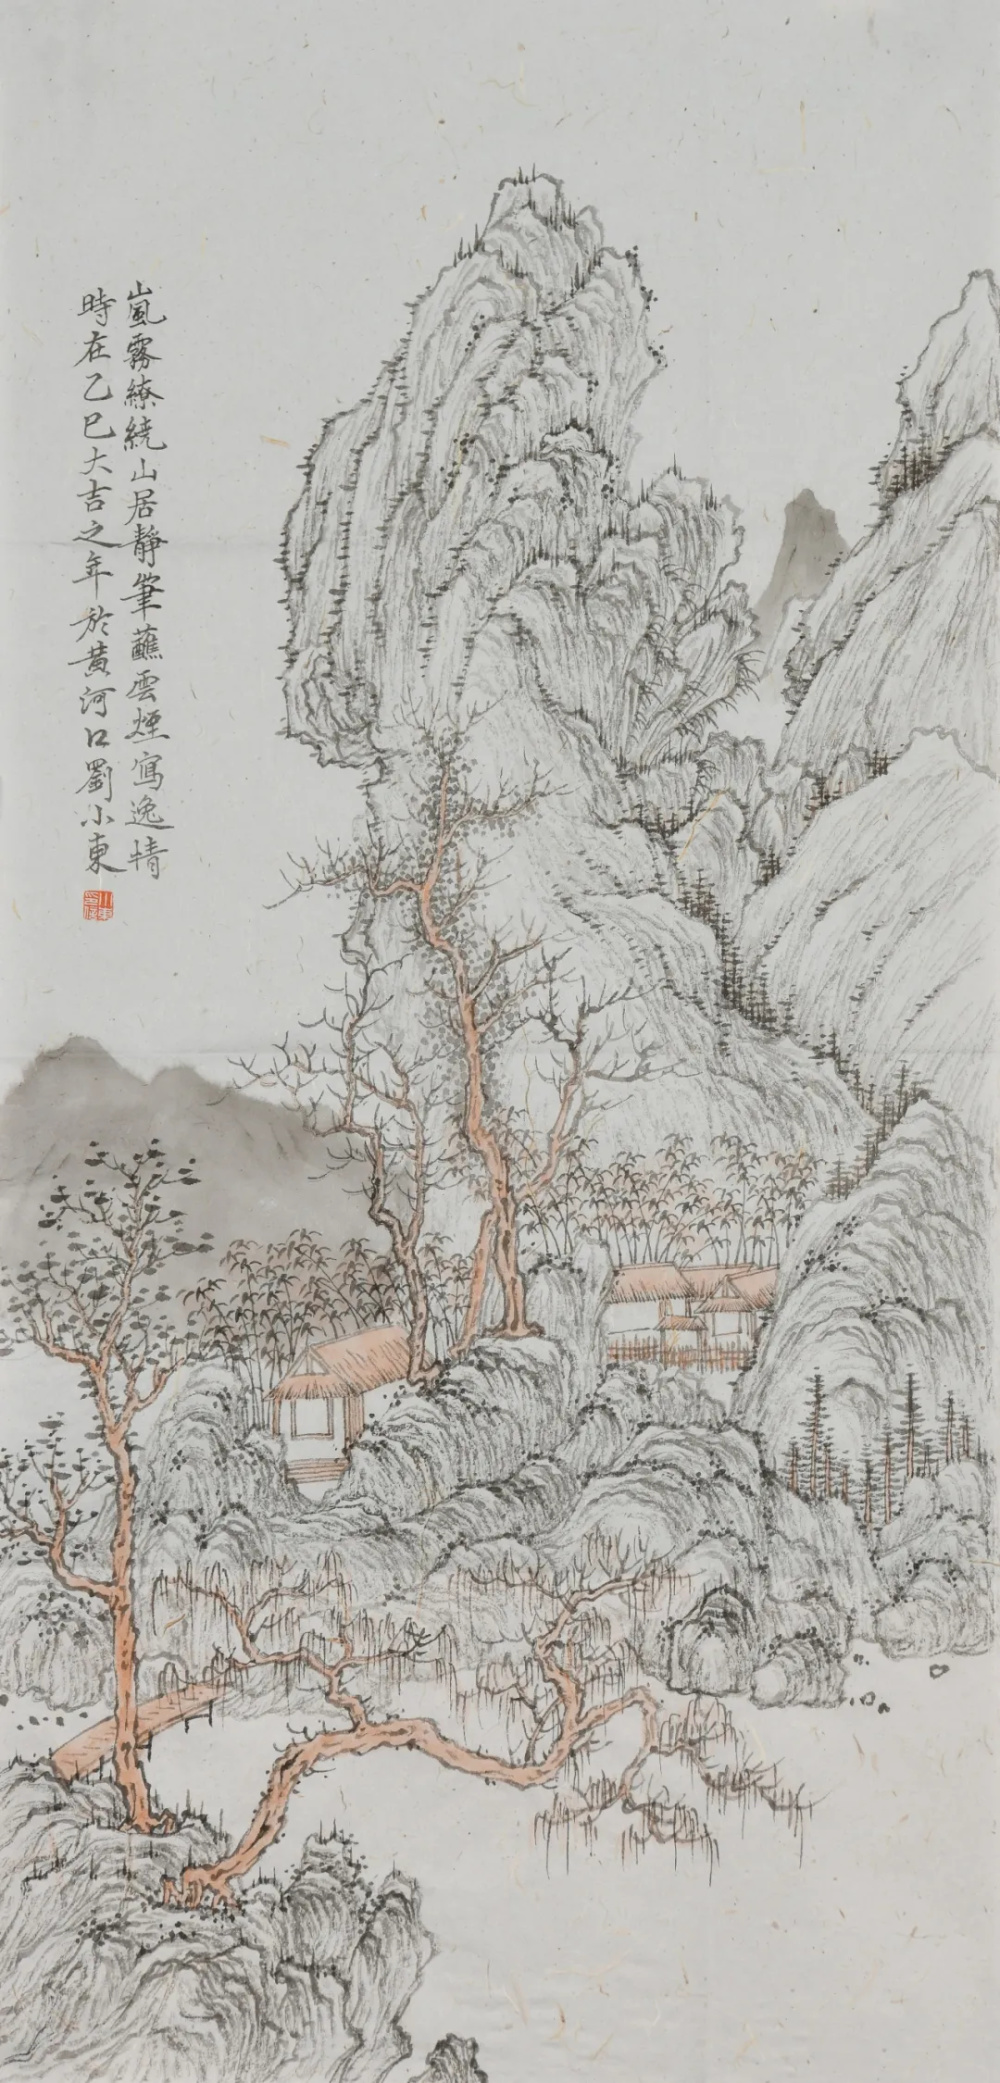 嵐霧繚繞山居靜筆蘸雲煙寫逸情
時在乙巳大吉之年於黃河口劉小東